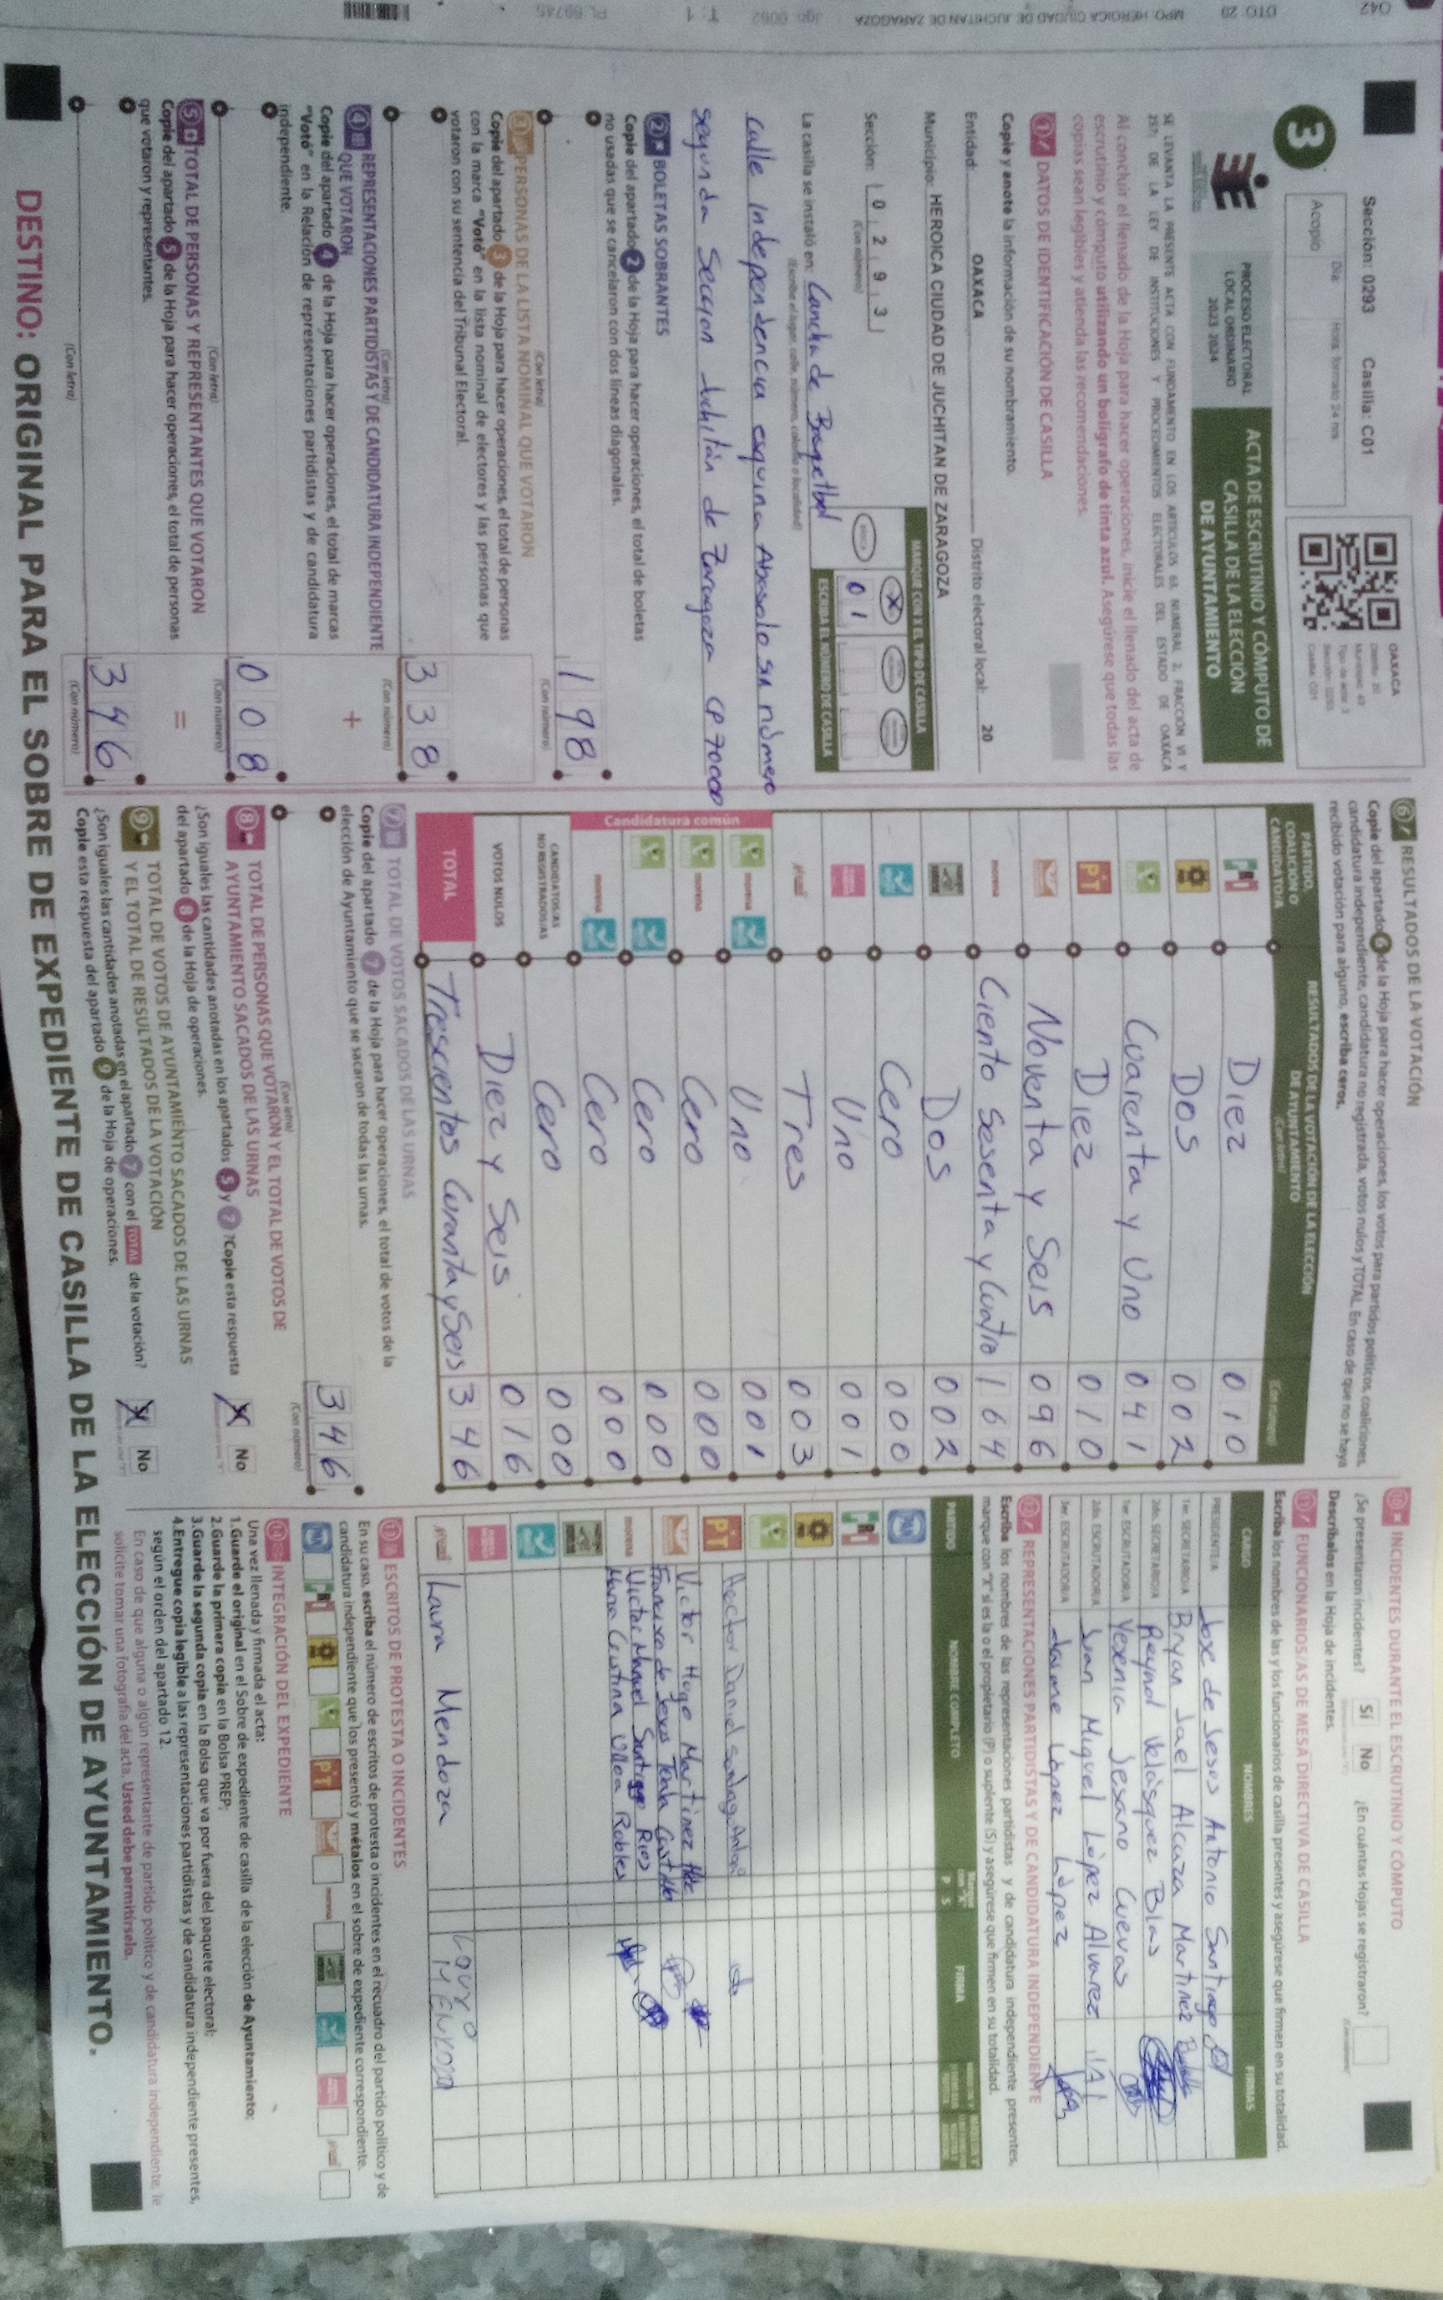 Sección: 0293 Casilla: C01
Acopio
Día
Hora formato 24 hrs
OAXACA
3
PROCESO ELECTORAL
LOCAL ORDINARIO
2023 2024
ACTA DE ESCRUTINIO Y CÓMPUTO DE
CASILLA DE LA ELECCIÓN
DE AYUNTAMIENTO
Al concluir el llenado de la Hoja para hacer operaciones, inicie el llenado del acta de
escrutinio y cómputo utilizando un bolígrafo de tinta azul. Asegúrese que todas las
copias sean legibles y atienda las recomendaciones.
1 DATOS DE IDENTIFICACIÓN DE CASILLA
Copie y anote la información de su nombramiento.
Entidad: OAXACA Distrito electoral local: 20
Municipio: HEROICA CIUDAD DE JUCHITAN DE ZARAGOZA
Sección: 0 2 9 3
(Con número)
MARQUE CON X EL TIPO DE CASILLA
X
0 1
ESCRIBA EL NÚMERO DE CASILLA
La casilla se instaló en: Cancha de Basquetbol
(Escriba el lugar, calle, número, colonia o localidad)
calle independencia esquina Abasolo sin número
segunda Seccion Juchitán de Zaragoza CP. 70000
2 BOLETAS SOBRANTES
Copie del apartado 2 de la Hoja para hacer operaciones, el total de boletas
no usadas que se cancelaron con dos líneas diagonales.
198
(Con letra) (Con número)
3 PERSONAS DE LA LISTA NOMINAL QUE VOTARON
Copie del apartado 3 de la Hoja para hacer operaciones, el total de personas
con la marca "Votó" en la lista nominal de electores y las personas que
votaron con su sentencia del Tribunal Electoral.
338
(Con letra) (Con número)
4 REPRESENTACIONES PARTIDISTAS Y DE CANDIDATURA INDEPENDIENTE
QUE VOTARON
+
Copie del apartado 4 de la Hoja para hacer operaciones, el total de marcas
"Votó" en la Relación de representaciones partidistas y de candidatura
independiente.
008
(Con letra) (Con número)
5 TOTAL DE PERSONAS Y REPRESENTANTES QUE VOTARON
=
Copie del apartado 5 de la Hoja para hacer operaciones, el total de personas
que votaron y representantes.
346
(Con letra) (Con número)
6 RESULTADOS DE LA VOTACIÓN
Copie del apartado 6 de la Hoja para hacer operaciones, los votos para partidos políticos, coaliciones,
candidatura independiente, candidatura no registrada, votos nulos y TOTAL. En caso de que no se haya
recibido votación para alguno, escriba ceros.
PARTIDO,
COALICIÓN O
CANDIDATO/A
RESULTADOS DE LA VOTACIÓN DE LA ELECCIÓN
DE AYUNTAMIENTO
(Con letra) (Con número)
Diez 010
Dos 002
Cuarenta y Uno 041
PT Diez 010
Noventa y Seis 096
morena Ciento Sesenta y Cuatro 164
Dos 002
Cero 000
Uno 001
Tres 003
Candidatura común
morena Uno 001
morena Cero 000
Cero 000
morena Cero 000
CANDIDATOS/AS
NO REGISTRADOS/AS Cero 000
VOTOS NULOS Diez y Seis 016
TOTAL Trescientos Curanta y Seis 346
7 TOTAL DE VOTOS SACADOS DE LAS URNAS
Copie del apartado 7 de la Hoja para hacer operaciones, el total de votos de la
elección de Ayuntamiento que se sacaron de todas las urnas.
346
(Con letra) (Con número)
8 TOTAL DE PERSONAS QUE VOTARON Y EL TOTAL DE VOTOS DE
AYUNTAMIENTO SACADOS DE LAS URNAS
¿Son iguales las cantidades anotadas en los apartados 5 y 7? Copie esta respuesta
del apartado 8 de la Hoja de operaciones.
X No
9 TOTAL DE VOTOS DE AYUNTAMIENTO SACADOS DE LAS URNAS
Y EL TOTAL DE RESULTADOS DE LA VOTACIÓN
¿Son iguales las cantidades anotadas en el apartado 7 con el TOTAL de la votación?
Copie esta respuesta del apartado 9 de la Hoja de operaciones.
X No
10 INCIDENTES DURANTE EL ESCRUTINIO Y CÓMPUTO
¿Se presentaron incidentes? Sí No ¿En cuántas Hojas se registraron?
Descríbalos en la Hoja de incidentes.
11 FUNCIONARIOS/AS DE MESA DIRECTIVA DE CASILLA
Escriba los nombres de las y los funcionarios de casilla presentes y asegúrese que firmen en su totalidad.
CARGO NOMBRES FIRMAS
PRESIDENTE/A Jose de Jesus Antonio Santiago
1er. SECRETARIO/A Bryan Jael Alcuza Martinez
2do. SECRETARIO/A Reynol Velásquez Blas
1er. ESCRUTADOR/A Yesenia Jesano Cuevas
2do. ESCRUTADOR/A Juan Miguel López Alvarez
3er. ESCRUTADOR/A Jaime Lopez López
12 REPRESENTACIONES PARTIDISTAS Y DE CANDIDATURA INDEPENDIENTE
Escriba los nombres de las representaciones partidistas y de candidatura independiente presentes,
marque con "X" si es la o el propietario (P) o suplente (S) y asegúrese que firmen en su totalidad.
PARTIDO NOMBRE COMPLETO P S FIRMA
PAN
PT Hector Daniel
Victor Hugo Martinez
Francisco de Jesus
morena Victor Manuel Santiago Rios
Maria Cristina Ulloa Robles
Laura Mendoza
13 ESCRITOS DE PROTESTA O INCIDENTES
En su caso, escriba el número de escritos de protesta o incidentes en el recuadro del partido político y de
candidatura independiente que los presentó y métalos en el sobre de expediente correspondiente.
14 INTEGRACIÓN DEL EXPEDIENTE
Una vez llenada y firmada el acta:
1.Guarde el original en el Sobre de expediente de casilla de la elección de Ayuntamiento;
2.Guarde la primera copia en la Bolsa PREP;
3.Guarde la segunda copia en la Bolsa que va por fuera del paquete electoral;
4.Entregue copia legible a las representaciones partidistas y de candidatura independiente presentes,
según el orden del apartado 12.
En caso de que alguna o algún representante de partido político y de candidatura independiente, le
solicite tomar una fotografía del acta. Usted debe permitírselo.
DESTINO: ORIGINAL PARA EL SOBRE DE EXPEDIENTE DE CASILLA DE LA ELECCIÓN DE AYUNTAMIENTO.